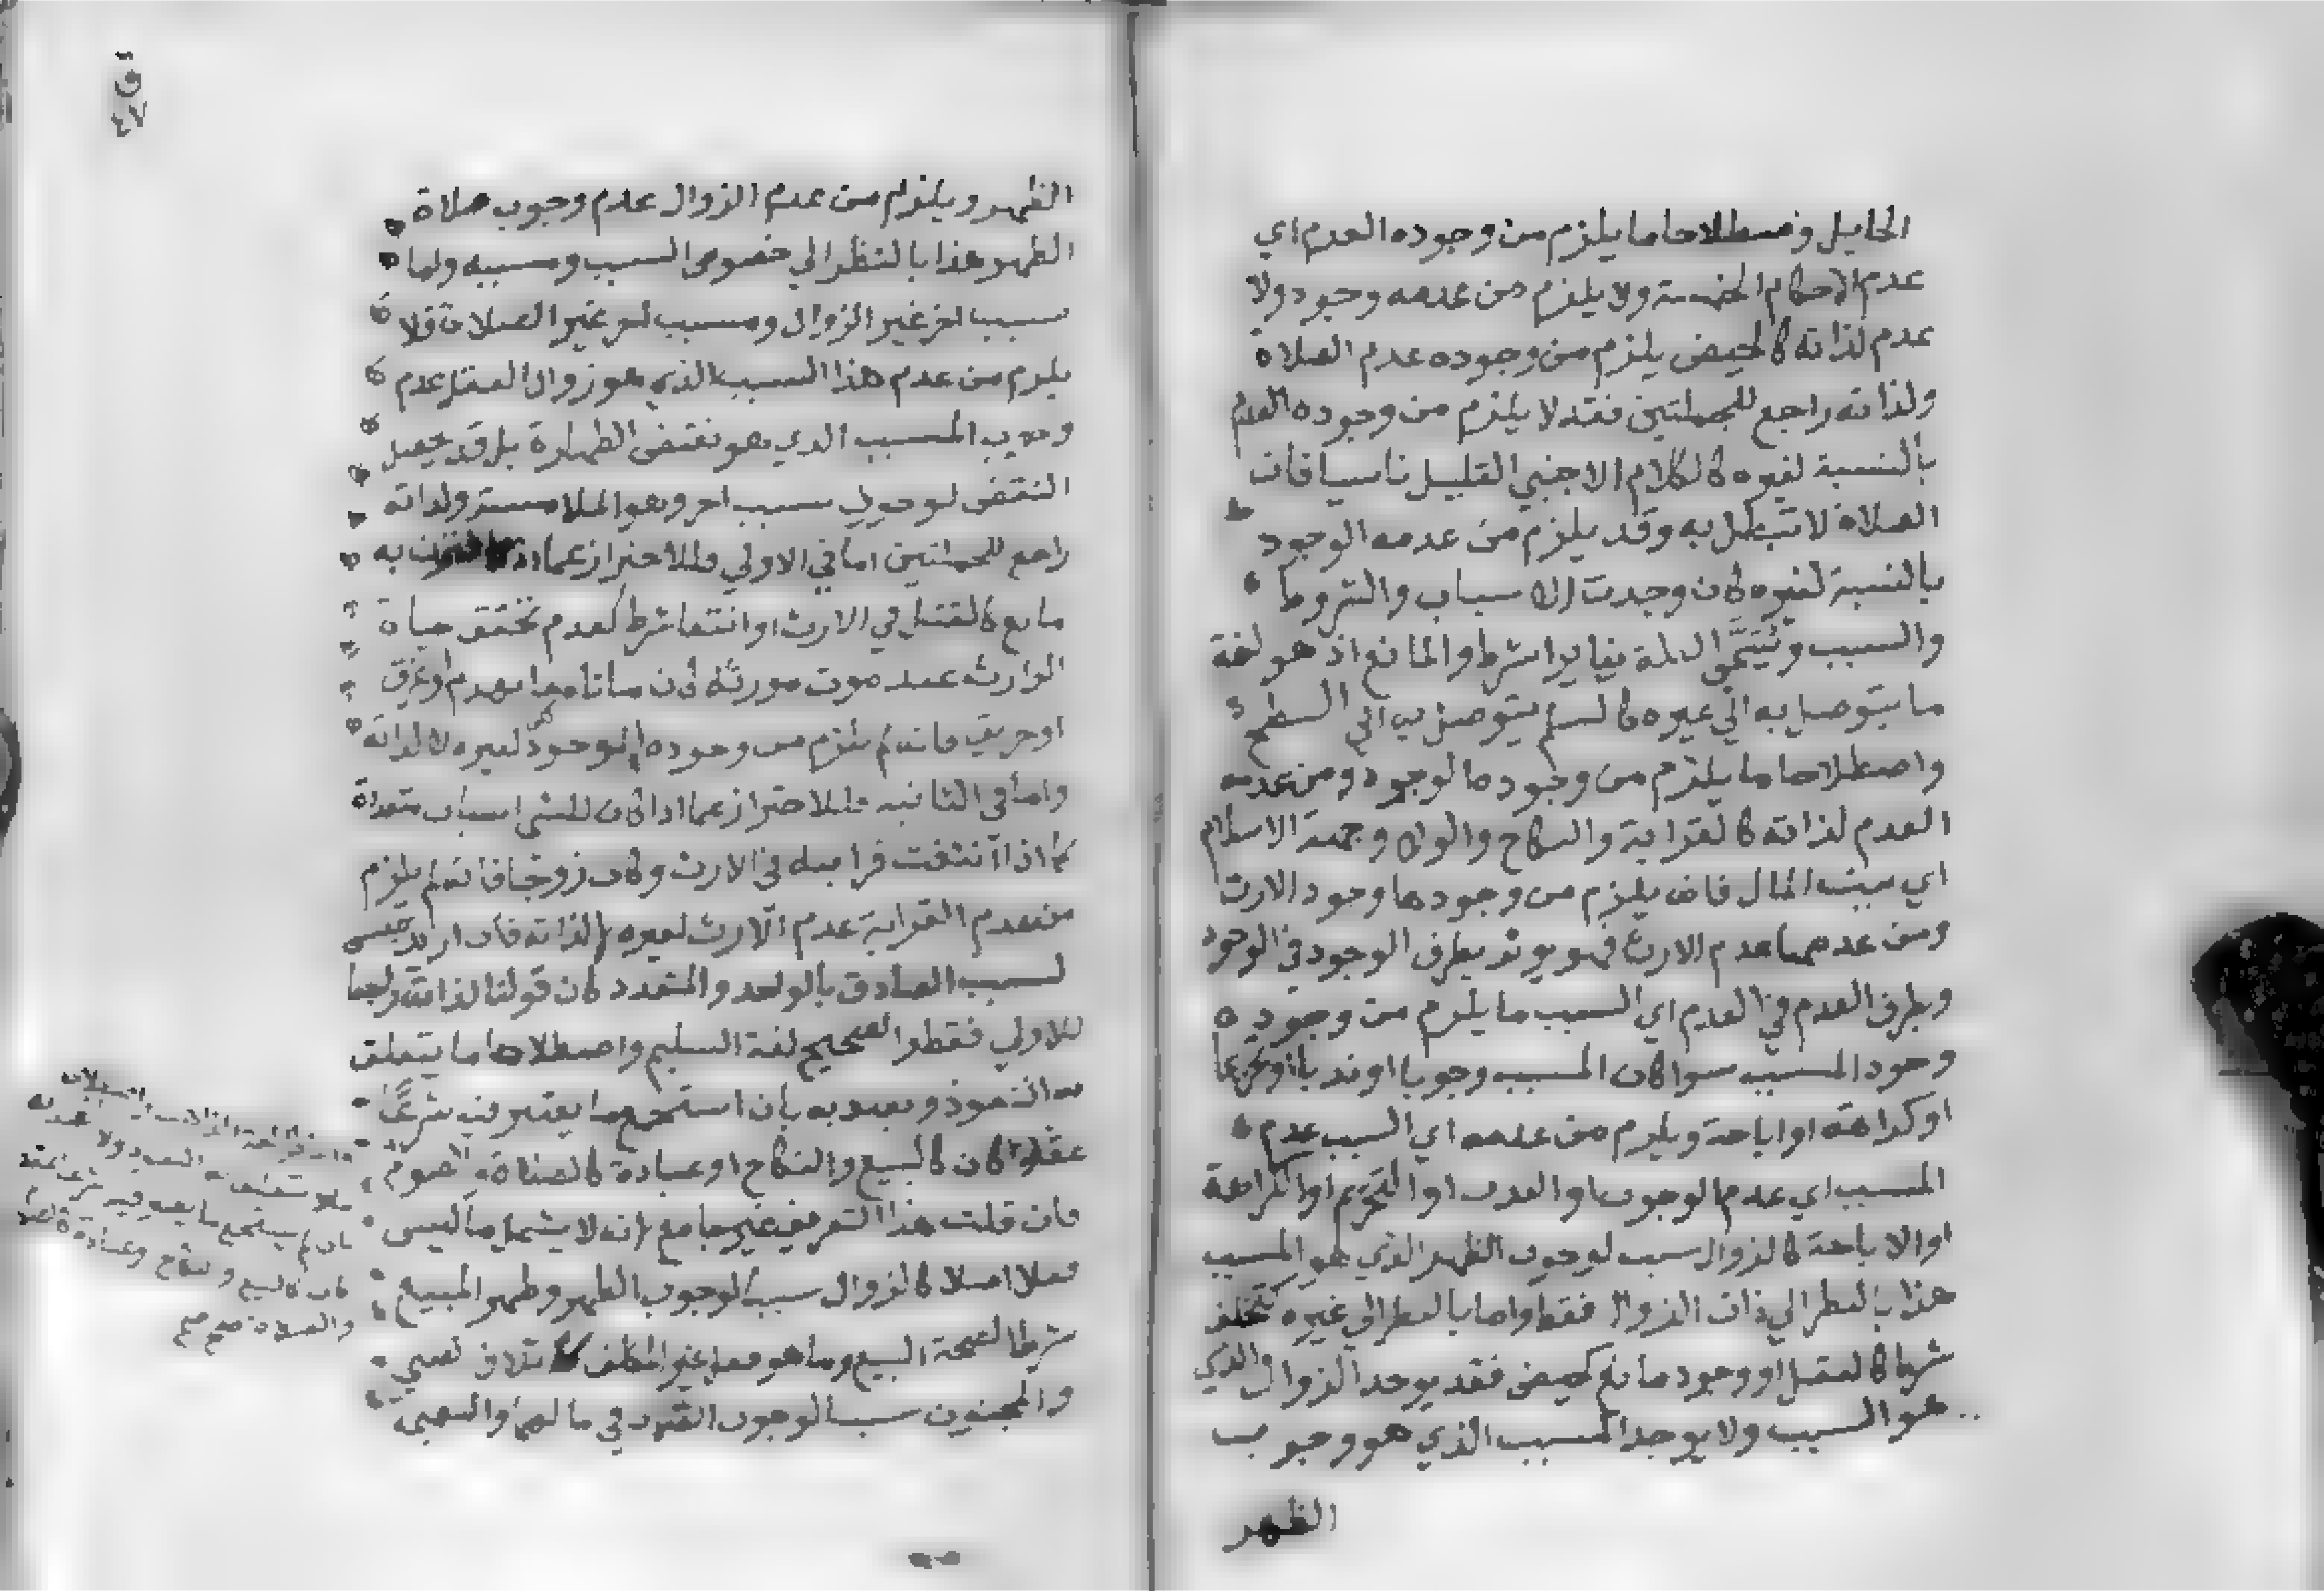 الحايل واصطلاحا ما يلزم من وجوده العدم اي
عدم الاحكام الخمسة ولا يلزم من عدمه وجود ولا
عدم لذاته كالحيض يلزم من وجوده عدم الصلاة
ولذاته راجع للجملتين فقد لا يلزم من وجوده العدم
بالنسبة لغيره كالكلام الاجنبي القليل ناسيا فان
الصلاة لا تبطل به وقد يلزم من عدمه الوجود
بالنسبة لغيره كان وجدت الاسباب والشروط
والسبب ويسمى العلة يغاير الشرط والمانع اذ هو لغة
ما يتوصل به الي غيره كالسلم يتوصل به الي السطح
واصطلاحا ما يلزم من وجوده الوجود ومن عدمه
العدم لذاته كالقرابة والنكاح والولا وجهة الاسلام
اي بيت المال فان يلزم من وجودها وجود الارث
ومن عدمها عدم الارث فهو يوثر بطرف الوجود في الوجود
وبطرف العدم في العدم اي السبب ما يلزم من وجوده
وجود المسبب سوا كان المسبب وجوبا او ندبا او تحريما
او كراهة او اباحة ويلزم من عدمه اي السبب عدم
المسبب اي عدم الوجوب او الندب او التحريم او الكراهة
او الاباحة كالزوال سبب لوجوب الظهر الذي هو المسبب
هذا بالنظر الي ذات الزوال فقط واما بالنظر الي غيره كتخلف
شرط كالعقل او وجود مانع كحيض فقد يوجد الزوال الذي
هو السبب ولا يوجد المسبب الذي هو وجوب
الظهر
ق
٤٧
الظهر ويلزم من عدم الزوال عدم وجوب صلاة
الظهر هذا بالنظر الي خصوص السبب ومسببه واما
سبب اخر غير الزوال ومسبب اخر غير الصلاة فلا
يلزم من عدم هذا السبب الذي هو زوال العقل عدم
وجوب المسبب الذي هو نقض الطهارة بل قد يحصل
النقض لوجود سبب اخر وهو الملامسة ولذاته
راجع للجملتين اما في الاولي فللاحتراز عما اذا اقترن به
مانع كالقتل في الارث او انتفا شرط كعدم تحقق حياة
الوارث عند موت مورثه كان ماتا معا بهدم او غرق
او حريق فانه لم يلزم من وجوده الوجود لغيره لا لذاته
واما في الثانية فللاحتراز عما اذا كان للشي اسباب متعددة
كما اذا انتفت قرابته في الارث وكان زوجا فانه لم يلزم
من عدم القرابة عدم الارث لغيره لا لذاته فان اريد جنس
لسبب الصادق بالواحد والمتعدد كان قولنا لذاته راجعا
للاولي فقط والصحيح لغة السليم واصطلاحا ما يتعلق
به النفوذ ويعتد به بان استجمع ما يعتبر فيه شرعا
عقدا كان كالبيع والنكاح او عبادة كالصلاة والصوم
فان قلت هذا التعريف غير جامع لانه لا يشمل ما ليس
فعلا اصلا كالزوال سببا لوجوب الظهر وطهر المبيع
شرطا لصحة البيع وما هو فعل غير المكلف كاتلاف لصبي
والمجنون سببا لوجوب الضرر في مالهما والصبي
كان كالبيع والنكاح وعبادة
والصلاة صح صح